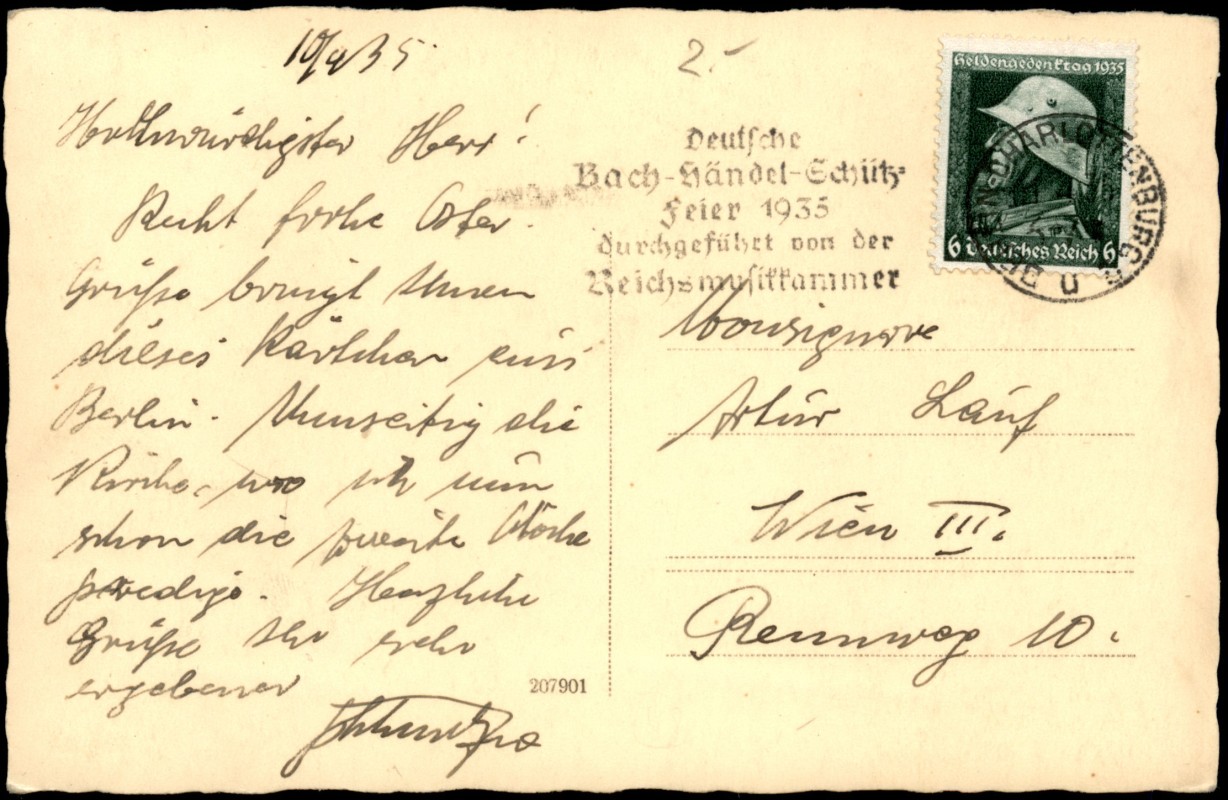 10/4 35
2.-
Hochwürdigster Herr!
Recht frohe Oster-
Grüße bringt Ihnen
dieses Kärtchen aus
Berlin. Umseitig die
Kirche, wo ich nun
schon die zweite Woche
predige. Herzliche
Grüße Ihr sehr
ergebener
207901
Deutsche
Bach-Händel-Schütz-
Feier 1935
durchgeführt von der
Reichsmusikkammer
Heldengedenktag 1935
6 Deutsches Reich 6
CHARLOTTENBURG
Monsignore
Artur Lauf
Wien III.
Rennweg 10.